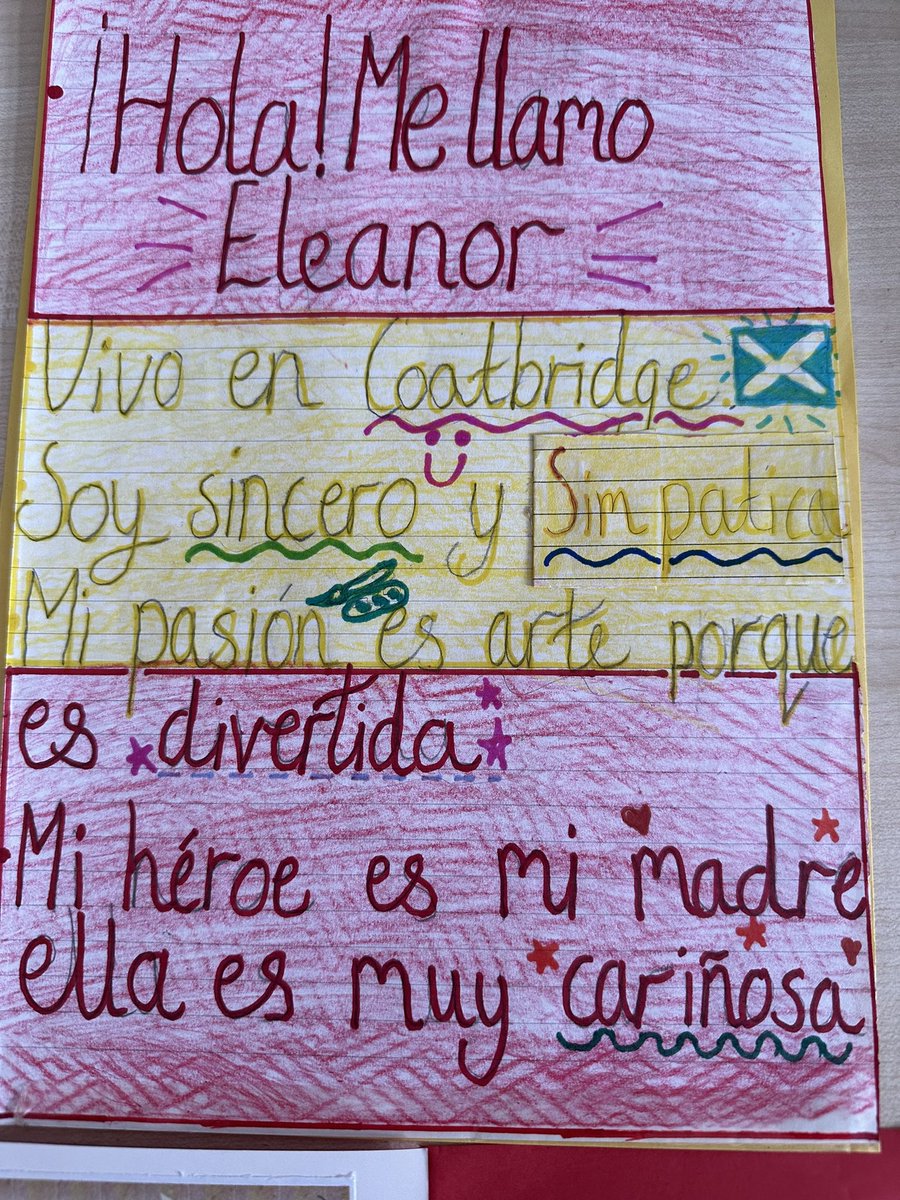 ¡Hola! Me llamo
Eleanor
Vivo en Coatbridge.
Soy sincero y Simpatica
Mi pasión es arte porque
es divertida
Mi héroe es mi madre
ella es muy cariñosa